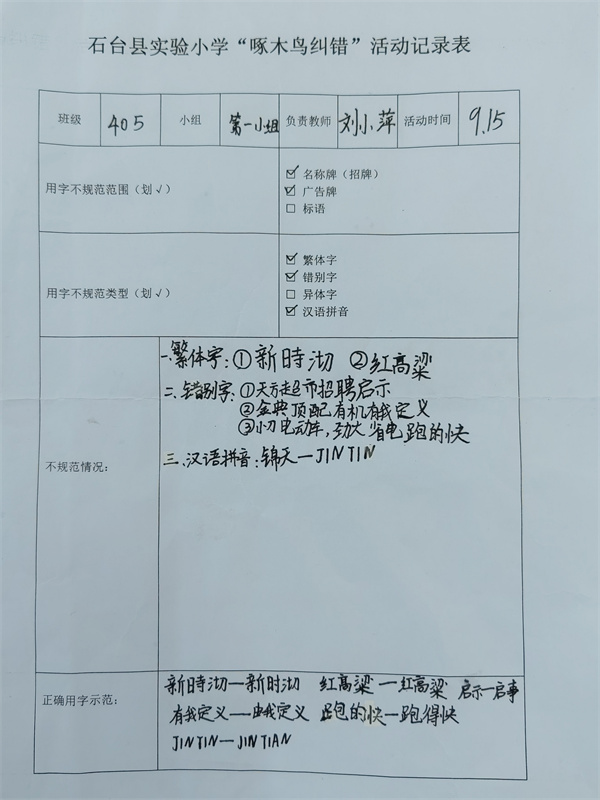 石台县实验小学“啄木鸟纠错”活动记录表
班级 405 小组 第一小组 负责教师 刘小萍 活动时间 9.15
用字不规范范围（划√）
☑ 名称牌（招牌）
☑ 广告牌
☐ 标语
用字不规范类型（划√）
☑ 繁体字
☑ 错别字
☐ 异体字
☑ 汉语拼音
不规范情况：
一.繁体字：①新時沏 ②红髙粱
二、错别字：①天方超市招聘启示
②金典顶配有机有我定义
③小刀电动车，劲大省电跑的快
三、汉语拼音：锦天—JINTIN
正确用字示范：
新時沏—新时沏 红髙粱—红高粱 启示—启事
有我定义—由我定义 跑的快—跑得快
JINTIN—JINTIAN